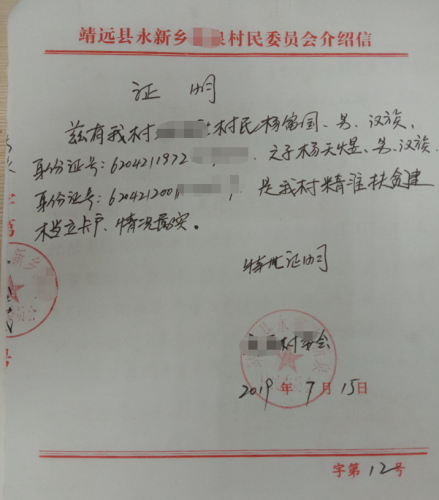 靖远县永新乡 泉村民委员会介绍信
证 明
兹有我村 社村民杨富国、男、汉族、
身份证号:6204211972 ,之子杨天煜、男、汉族、
身份证号:620421200 ,是我村精准扶贫建
档立卡户、情况属实。
特此证明
村委会
2019 年 7 月 15 日
字第 12 号